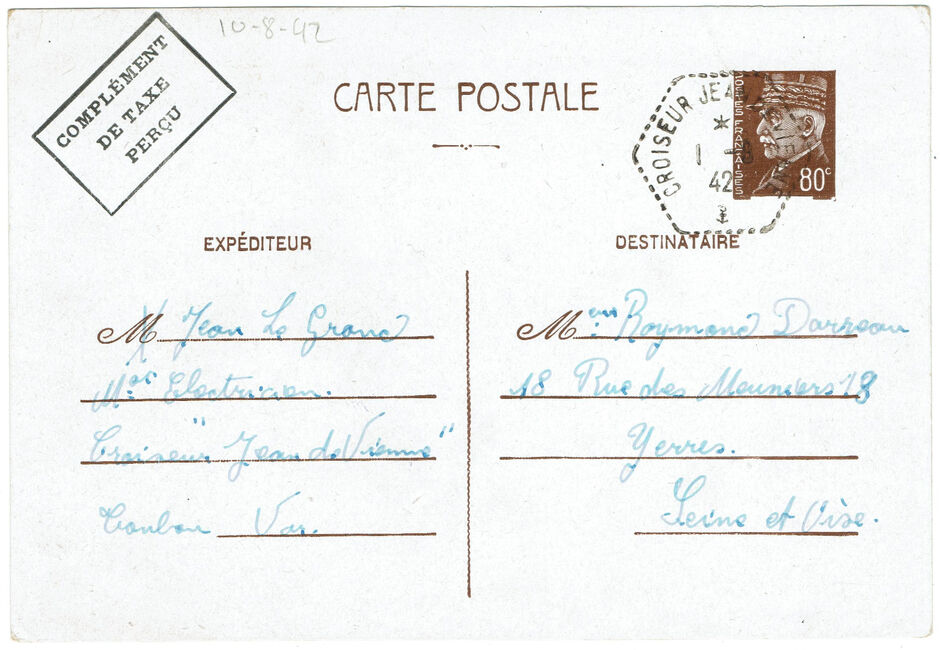 10-8-42
COMPLÉMENT
DE TAXE
PERÇU
CARTE POSTALE
CROISEUR JEAN DE VIENNE
1 -8
42
POSTES FRANÇAISES
80c
EXPÉDITEUR
M Jean Le Grand
Mot Electricien.
Croiseur "Jean de Vienne"
Toulon Var.
DESTINATAIRE
M Raymond Darreau
18 Rue des Meuniers 18
Yerres.
Seine et Oise.